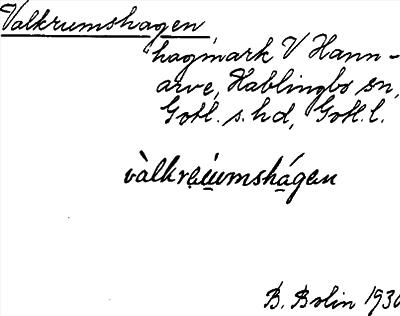 Valkrumshagen,
hagmark V Hann-
arve, Hablingbo sn,
Gotl. s. hd, Gotl. l.
vàlkreu̯umshágen
B. Bolin 1930